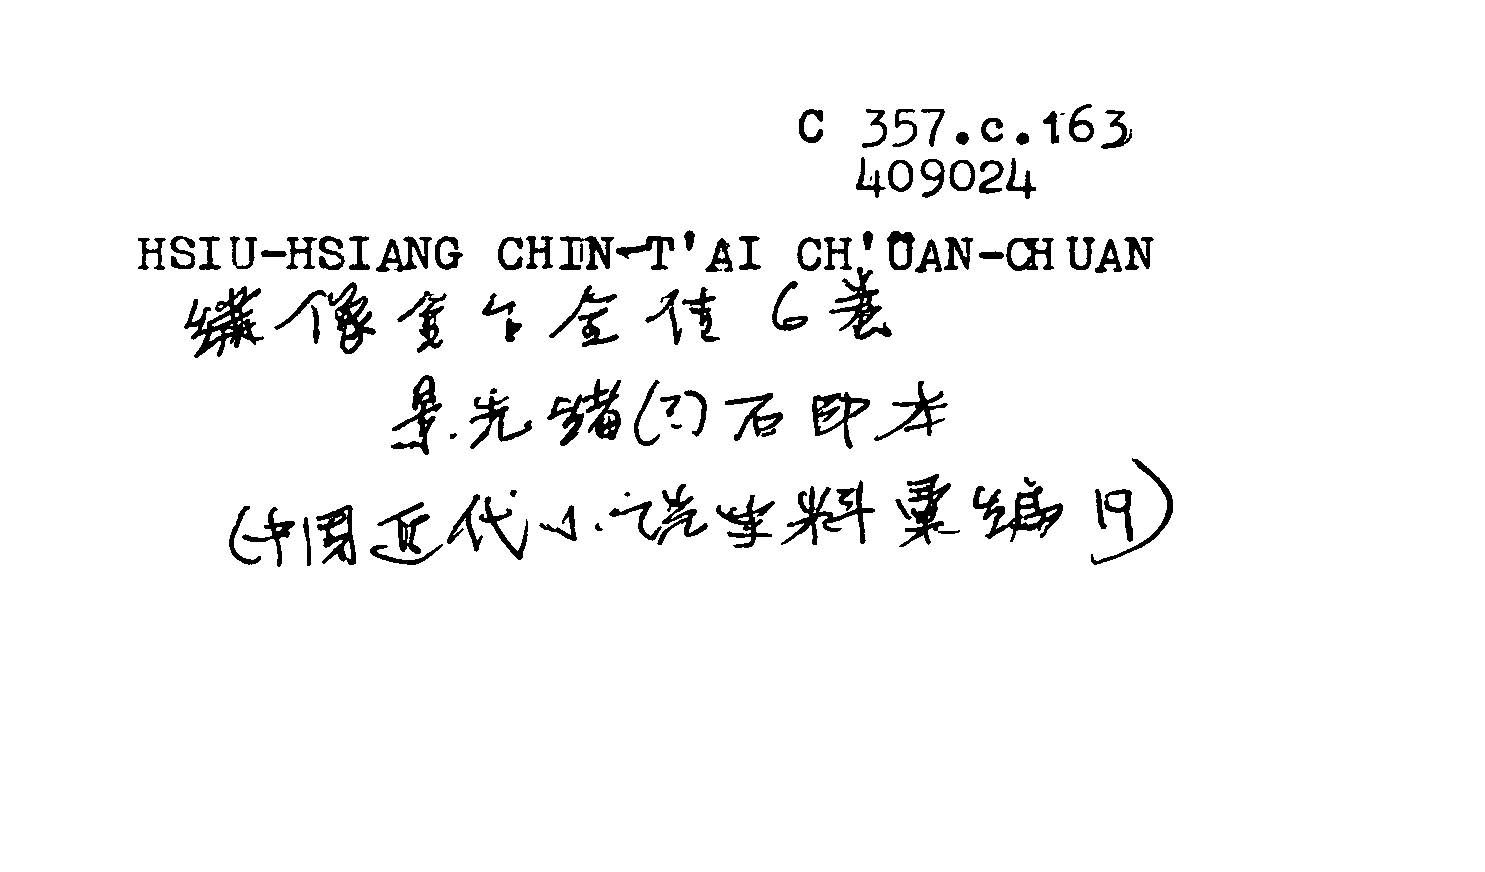 C 357.c.163
409024
HSIU-HSIANG CHIN-T'AI CH'ÜAN-CHUAN
繡像金台全傳 6卷
景光緒(?)石印本
(中国近代小说史料彙編 19)